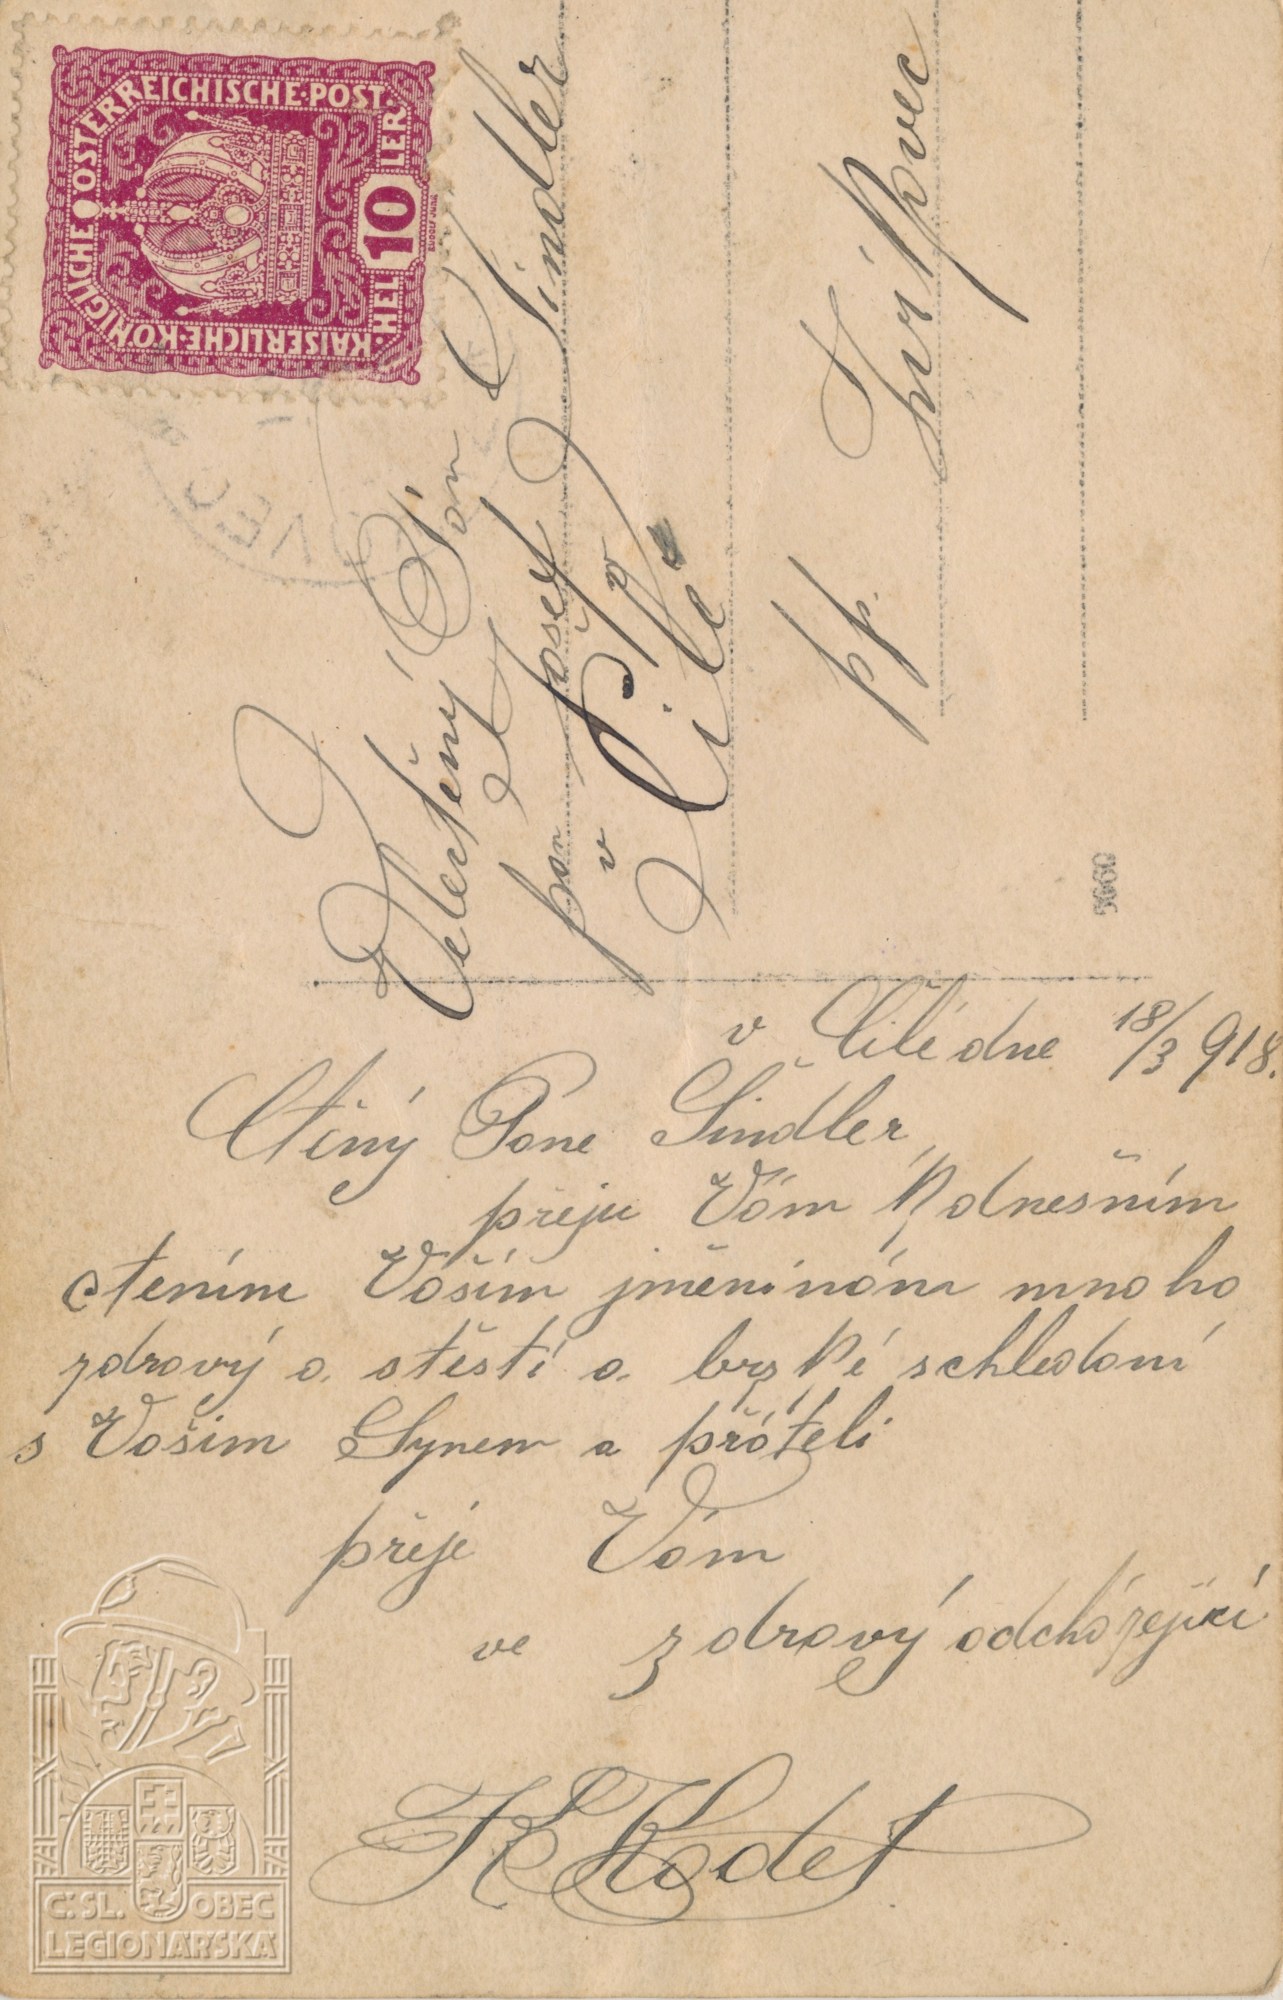 KAISERLICHE KÖNIGLICHE ÖSTERREICHISCHE POST
10
HEL LER
RUDOLF JUNK
Velectěný Pan
pan Josef Šindler
v Čilec
pp. Křivsoudov
v Čilé dne 18/3 918.
Ctěný Pane Šindler,
přeju Vám K dnešním
ctením Vaším jměninám mnoho
zdravý a stěstí a brzké schledaní
s Vašim Synem a přáteli
přéjé Vám
ve zdravý odcházející
K Kodet
Č. SL. OBEC
LEGIONÁŘSKÁ